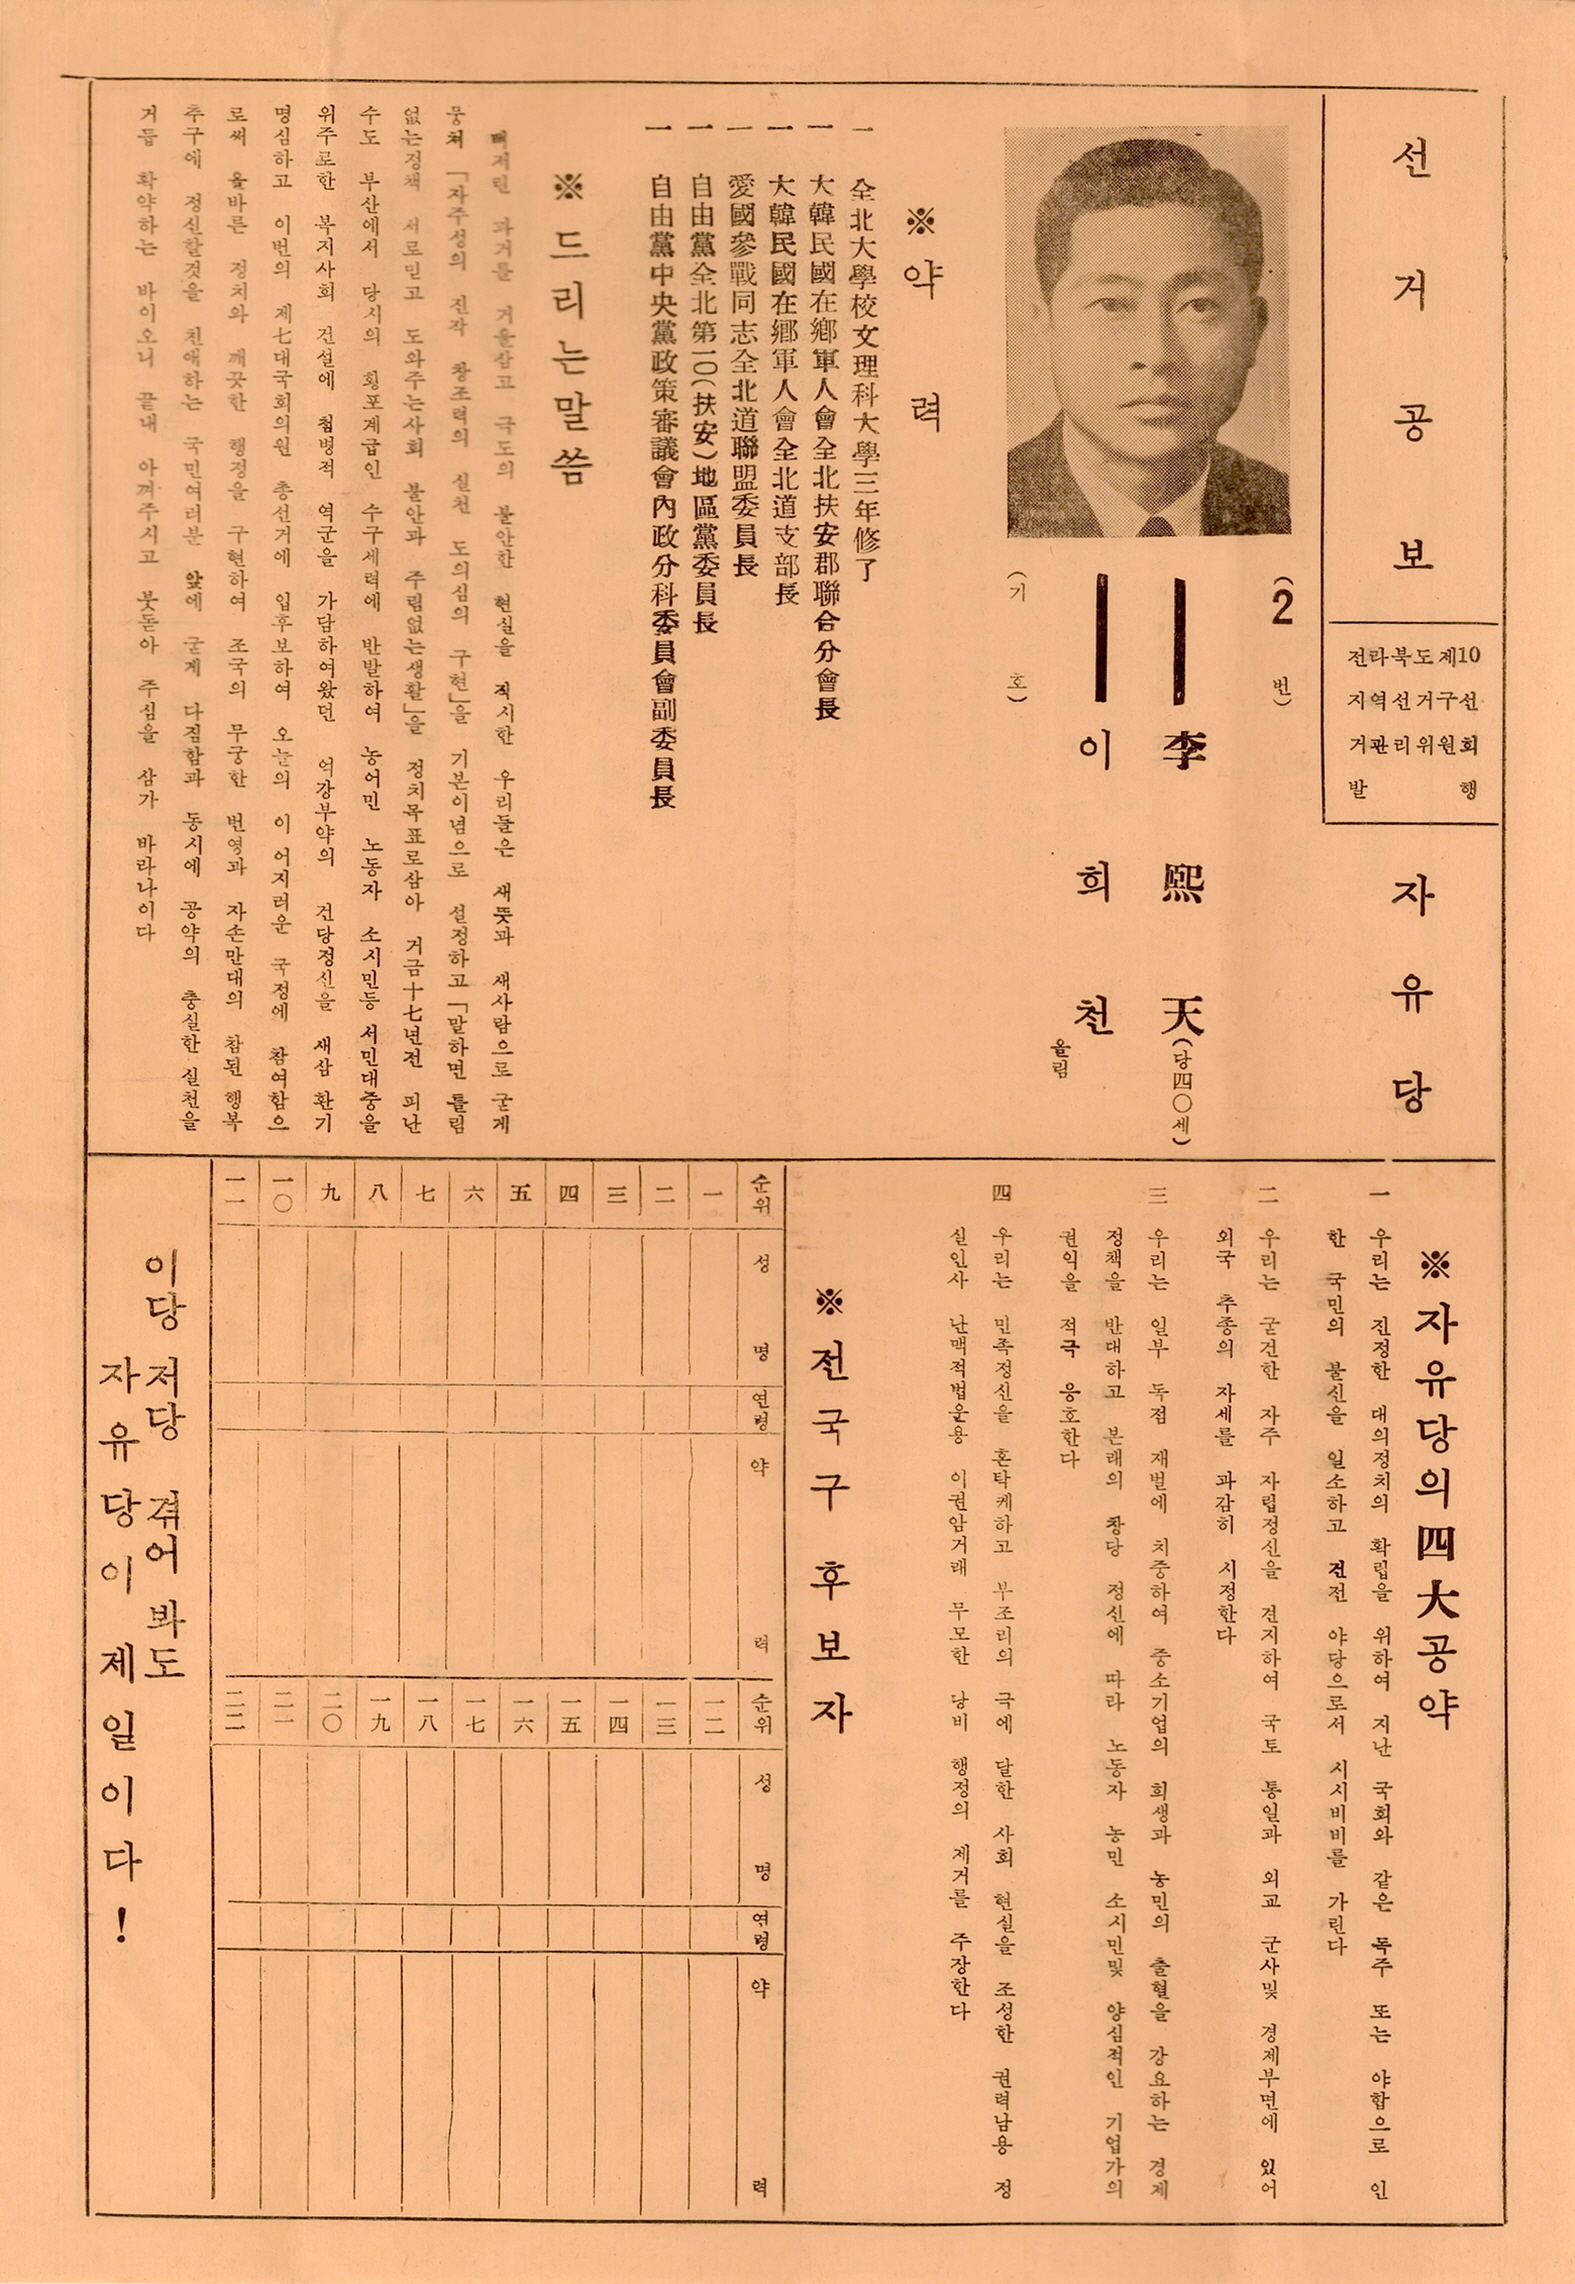 선거공보
전라북도제10
지역선거구선
거관리위원회
발행
자유당
(기호)
(2번)
李熙天(당四〇세)
이희천
올림
※약력
一 全北大學校文理科大學三年修了
一 大韓民國在鄕軍人會全北扶安郡聯合分會長
一 大韓民國在鄕軍人會全北道支部長
一 愛國參戰同志全北道聯盟委員長
一 自由黨全北第一〇(扶安)地區黨委員長
一 自由黨中央黨政策審議會內政分科委員會副委員長
※드리는말씀
저린 과거를 거울삼고 극도의 불안한 현실을 직시한 우리들은 새뜻과 새사람으로 굳게
뭉쳐 「자주성의 진작 창조력의 실천 도의심의 구현」을 기본이념으로 설정하고 「말하면 틀림
없는정책 서로믿고 도와주는사회 불안과 주림없는생활」을 정치목표로삼아 거금十七년전 피난
수도 부산에서 당시의 횡포계급인 수구세력에 반발하여 농어민 노동자 소시민등 서민대중을
위주로한 복지사회 건설에 첨병적 역군을 가담하여왔던 억강부약의 건당정신을 새삼 환기
명심하고 이번의 제七대국회의원 총선거에 입후보하여 오늘의 이 어지러운 국정에 참여함으
로써 올바른 정치와 깨끗한 행정을 구현하여 조국의 무궁한 번영과 자손만대의 참된 행복
추구에 정신할것을 친애하는 국민여러분 앞에 굳게 다짐함과 동시에 공약의 충실한 실천을
거듭 확약하는 바이오니 끝내 아껴주시고 붓돋아 주심을 삼가 바라나이다
※자유당의四大공약
一 우리는 진정한 대의정치의 확립을 위하여 지난 국회와 같은 독주 또는 야합으로 인
한 국민의 불신을 일소하고 건전 야당으로서 시시비비를 가린다
二 우리는 굳건한 자주 자립정신을 견지하여 국토 통일과 외교 군사및 경제부면에 있어
외국 추종의 자세를 과감히 시정한다
三 우리는 일부 독점 재벌에 치중하여 중소기업의 희생과 농민의 출혈을 강요하는 경제
정책을 반대하고 본래의 창당 정신에 따라 노동자 농민 소시민및 양심적인 기업가의
권익을 적극 옹호한다
四 우리는 민족정신을 혼탁케하고 부조리의 극에 달한 사회 현실을 조성한 권력남용 정
실인사 난맥적법운용 이권암거래 무모한 당비 행정의 제거를 주장한다
※전국구 후보자
순위 성명 연령 약력
一
二
三
四
五
六
七
八
九
一〇
一一
순위 성명 연령 약력
一二
一三
一四
一五
一六
一七
一八
一九
二〇
二一
二二
이당 저당 겪어 봐도
자유당이 제일이다!